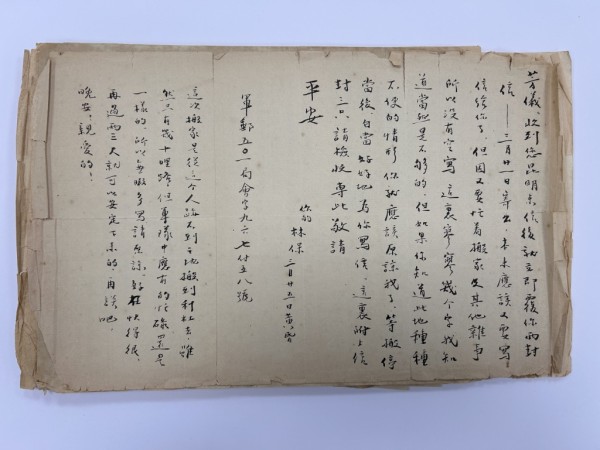 芳儀：收到您昆明來信後就立即覆你兩封
信——三月廿一日寄出，本來應該又要寫
信給你了，但因又要忙着搬家及其他雜事
所以沒有空寫，這裏寥寥幾个字我知
道當然是不够的，但如果你知道此地種種
不便的情形你就應該原諒我了，等搬停
當後自當好好地為你寫信，這裏附上信
封三只請檢收專此敬請
平安
你的林保
三月廿五日黃昏
軍郵五〇一局會字九六七付五八號
這次搬家是從這个人跡不到之地搬到村在去，雖
然只有幾十哩路，但軍隊中應有的忙碌還是
一樣的，所以無暇多寫請原諒。好在快得很，
再過兩三天就可以安定下來的，再談吧。
晚安，親愛的！